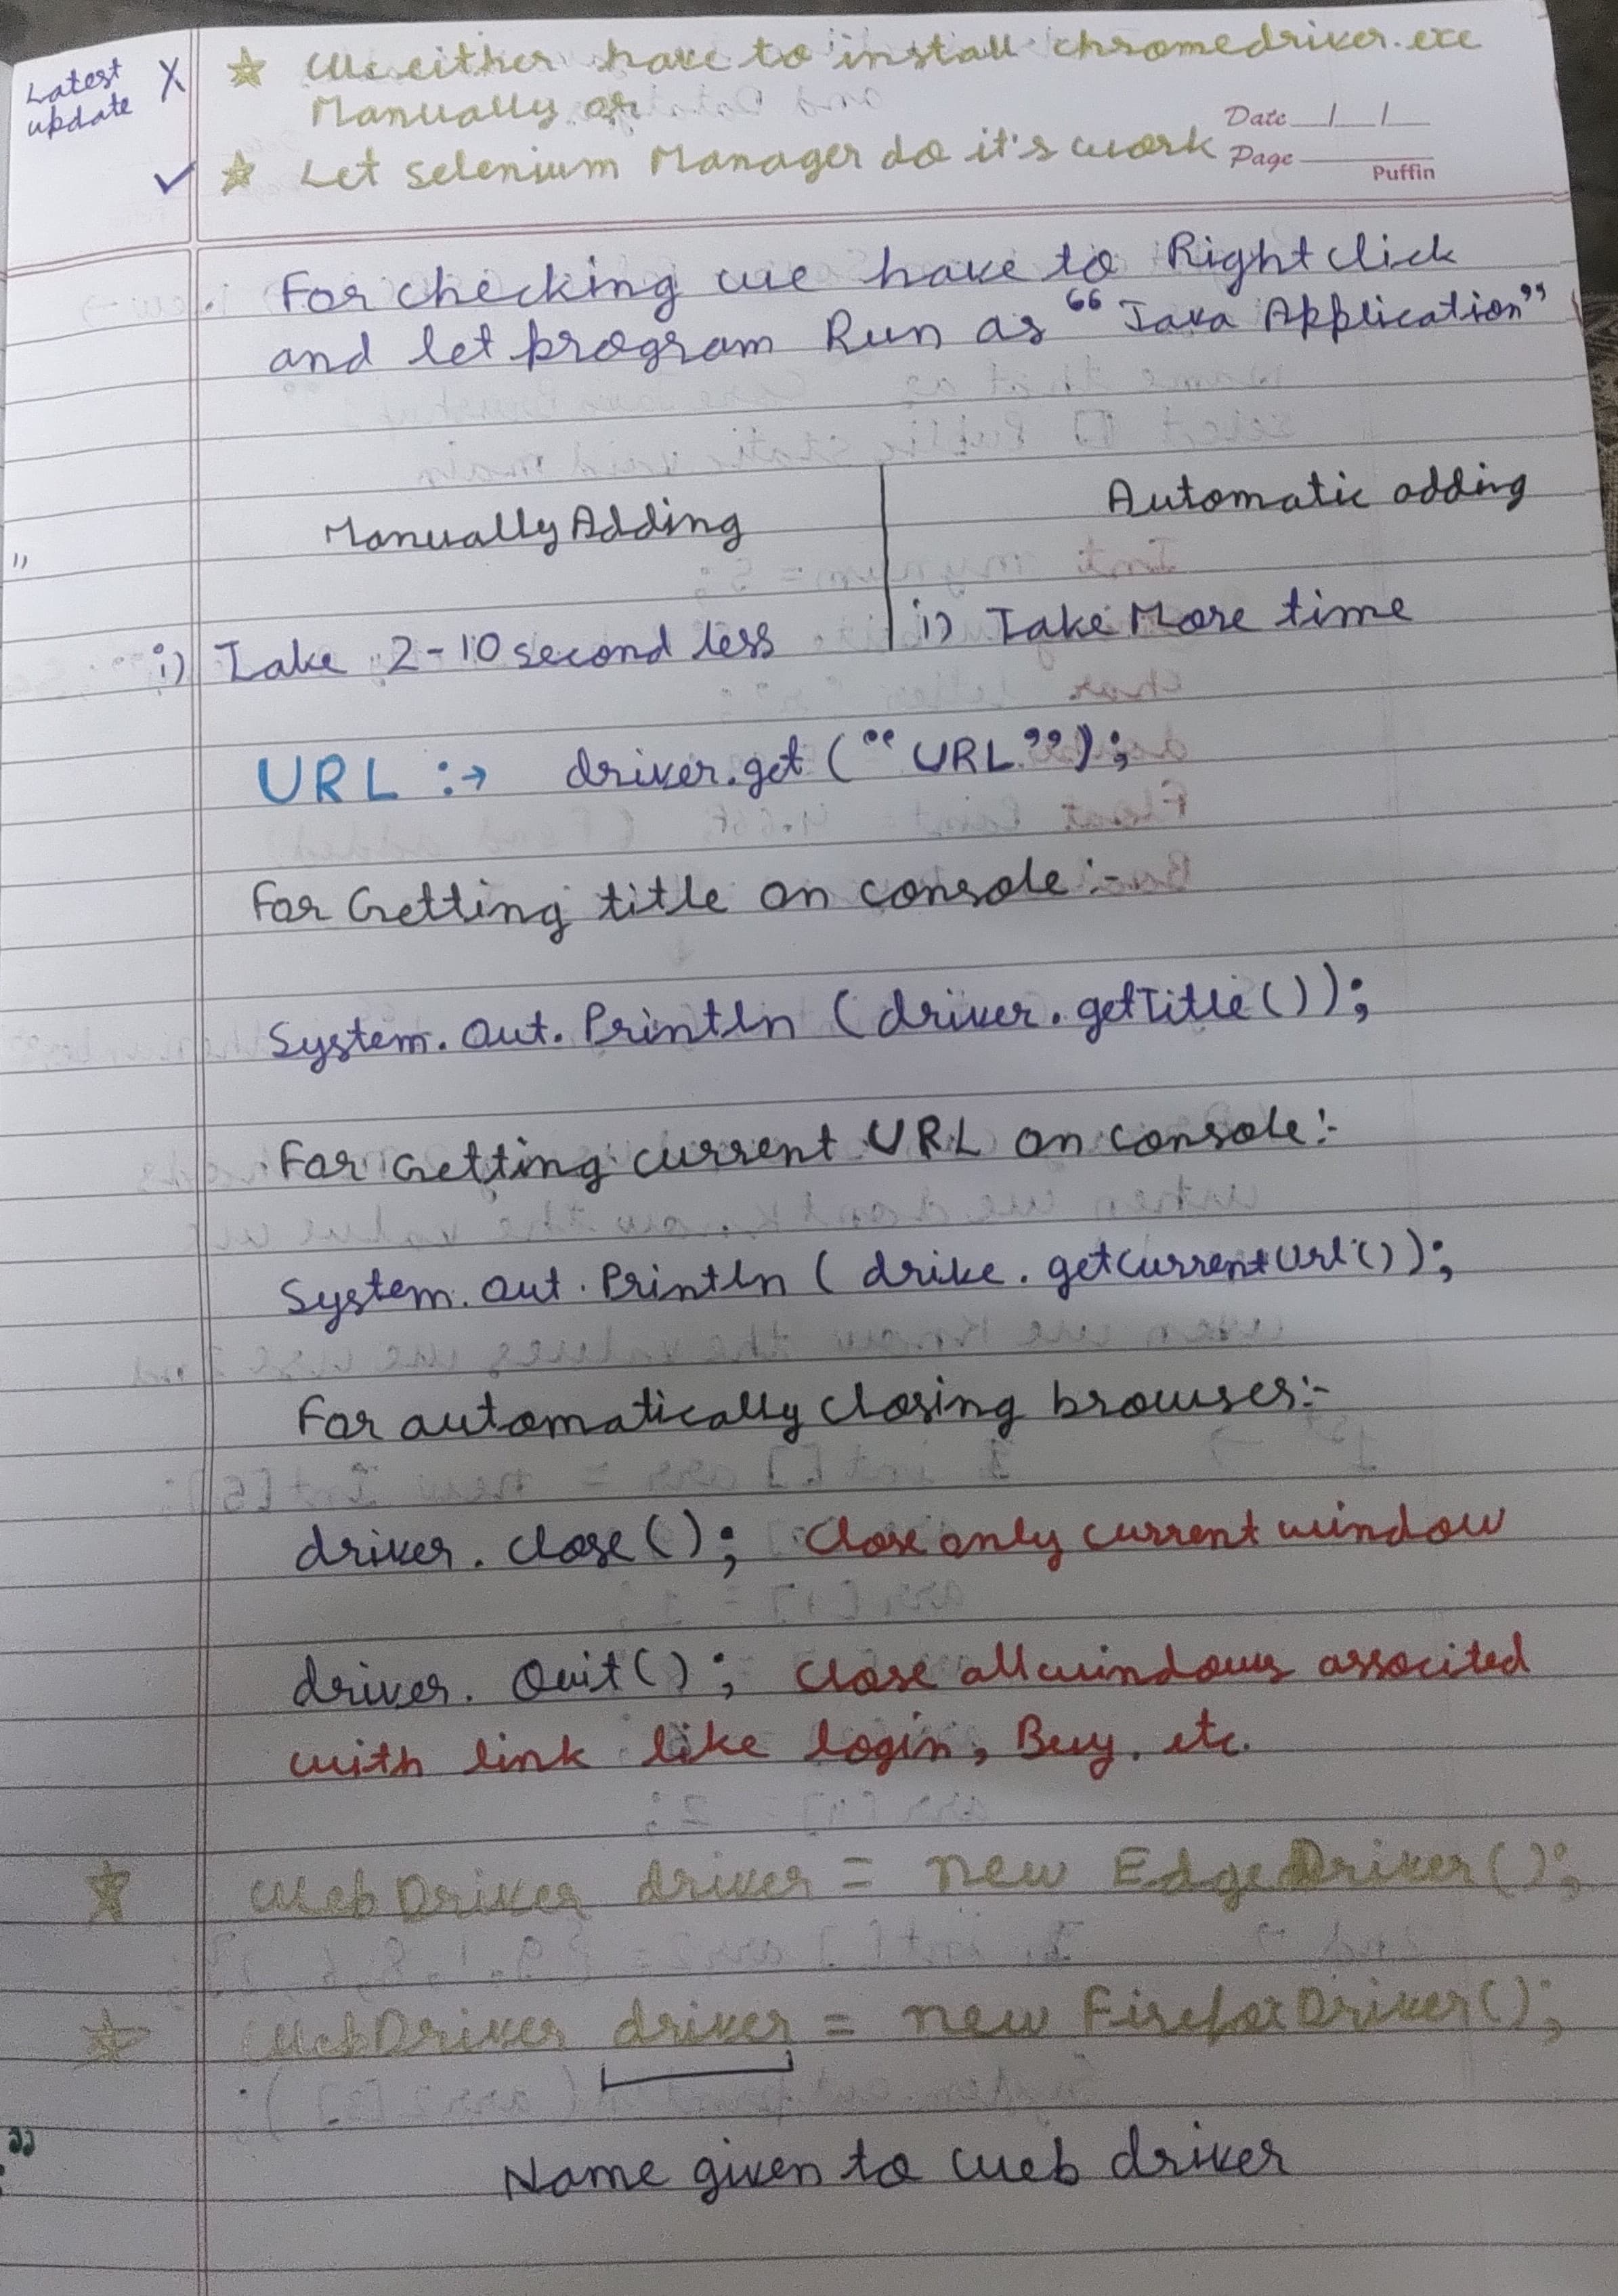 Latest update X ☆ We either have to install chromedriver.exe
Manually or
Date __/__/__
✓ ☆ Let selenium Manager do it's work
Page
Puffin
For checking we have to Right click
and let program Run as “Java Application”
Manually Adding
Automatic adding
i) Take 2-10 second less
i) Take More time
URL :→ driver.get (“URL”);
For Getting title on console:-
System.out.Println (driver.getTitle());
For Getting current URL on console:-
System.out.Println (drive.getCurrentUrl());
For automatically closing browser:-
driver.close(); Close only current window
driver.Quit(); Close all windows associted
with link like login, Buy, etc.
☆ WebDriver driver = new EdgeDriver();
☆ WebDriver driver = new FirefoxDriver();
Name given to web driver